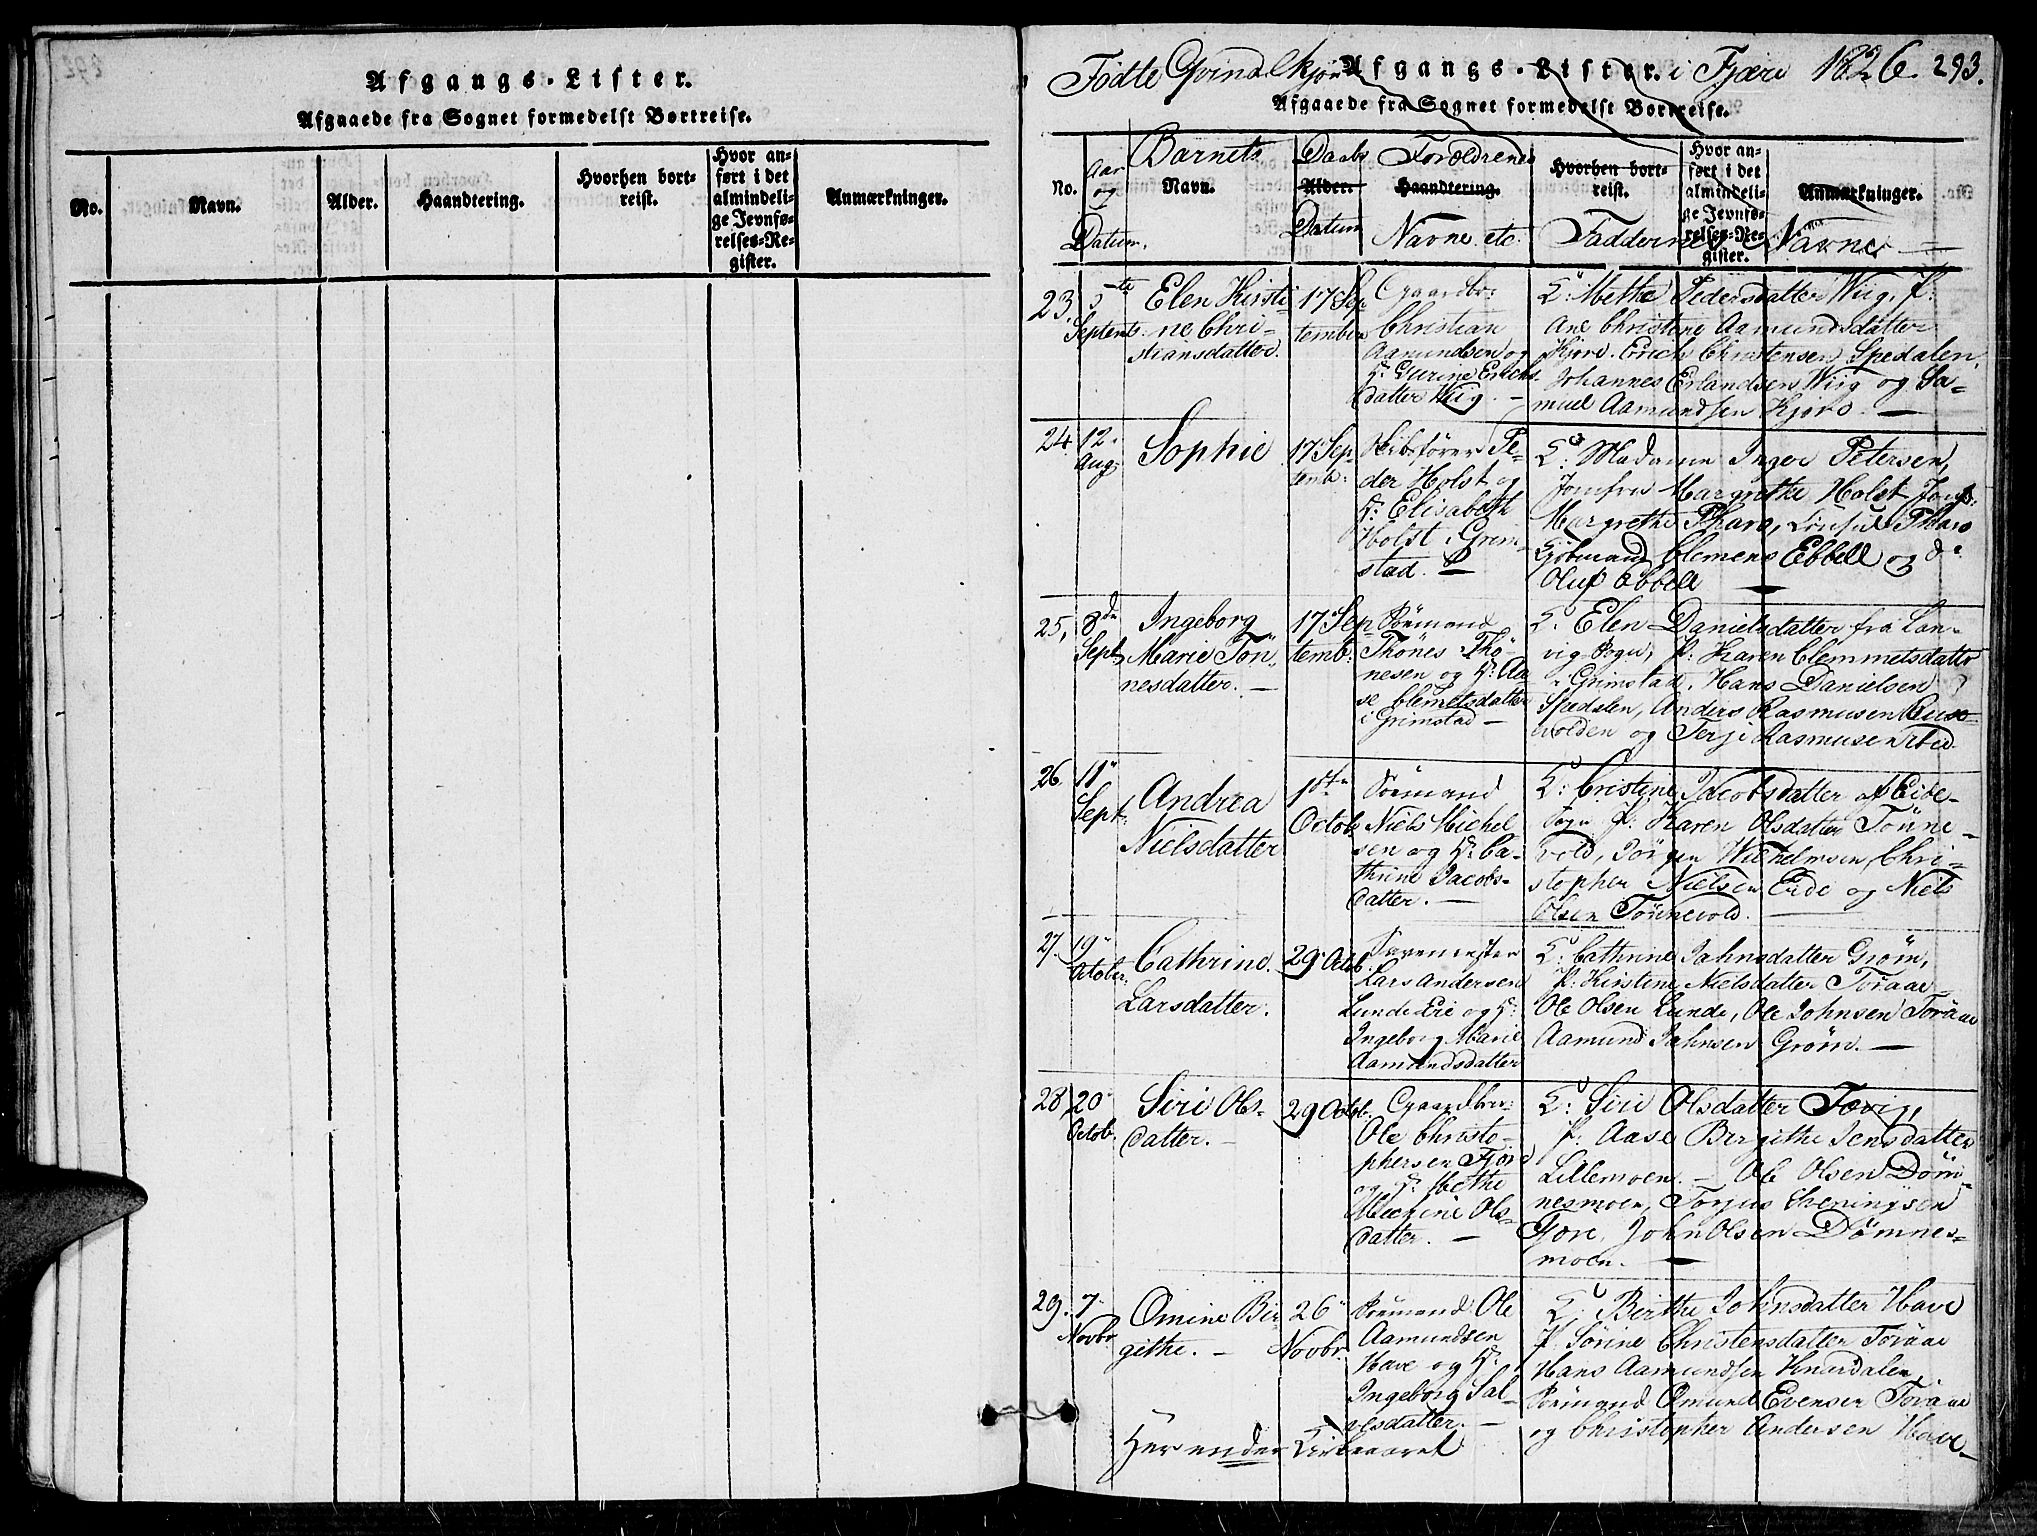 Afgangs-Lister.
Afgaaede fra Sognet formedelst Bortreise.
No.
Navn.
Alder.
Haandtering.
Hvorhen bort-
reist.
Hvor an-
ført i det
almindeli-
ge Jevnfø-
relses-Re-
gister.
Anmærkninger.
Fødte Qvindekjøn Afgangs-Lister. i Fjære 1826. 293.
Afgaaede fra Sognet formedelst Bortreise.
No.
Aar
og
Datum.
Barnets
Navn.
Daabs
Alder.
Datum
Forældrenes
Haandtering.
Navne etc.
Hvorhen bort-
reist.
Hvor an-
ført i det
almindeli-
ge Jevnfø-
relses-Re-
gister.
Anmærkninger.
Faddernes Navne
23.
5te
Septemb.
Elen Kirsti-
ne Chri-
stiansdatter.
17 Sep
tember
Gaardbr:
Christian
Aamundsen og
K: Gurine Erichs-
datter Wiig. -
Methe Pedersdatter Wiig, P:
Ane Christine Aamundsdatter
Erich Christensen Spedalen,
Johannes Erlandsen Wiig og Sa-
muel Aamundsen
24.
12.
Aug:
Sophie
17 Sep-
temb:
Skibsfører Pe-
der Holst og
K: Elisabeth
Holst i Grim-
stad.
Madamm Inger Petersen,
Jomfru Margrethe Holst, Jomf:
Margrethe Tharo,
Clemens Ebbell og do
Oluf Ebbell
25,
8de
Sept
Ingeborg
Marie Tøn-
nesdatter. -
17 Sep-
temb:
Sømand
Thønes Thø-
nesen og K: Aa-
se Clemetsdatter
i Grimstad -
Elen Danielsdatter fra Lan-
vig Sogn, P: Karen Clemmetsdatter
i Grimstad. Hans Danielsen
Spedalen, Anders Rasmusen
og Terje Rasmusen ibid.
26.
11
Sept:
Andrea
Nielsdatter
1ste
Octob:
Sømand
Niels Michel
sen og K: Ca-
thrine Jacobs-
datter. -
Cristine Jacobsdatter af Eide-
Sogn P: Karen Olsdatter Tønne-
vold, Jørgen Wilhelmsen, Chri-
stopher Nielsen Eide og Niels
Olsen Tønnevold.
27.
19
October
Cathrine
Larsdatter.
29 Octob.
Lars Andersen
og K:
Ingeborg Marie
Aamundsdatter
Cathrine Jahnsdatter Grøm,
P: Kirstine Nielsdatter Toraae
Ole Olsen Lunde, Ole Johnsen Toraae
Aamund Jahnsen Grøm. -
28
20
Octob.
Siri Ols-
datter. -
29 Octob.
Gaardbr:
Ole Christo-
phersen Fjære
og K: Methe
Ols-
datter. -
Siri Olsdatter
P: Aase Birgithe Jensdatter
Lillemoen. - Ole Olsen Døm-
nesmoen, Torjus
Fjære, John Olsen Dømnes-
moen. -
29.
7
Novbr
Omine Bir-
githe. -
26
Novbr.
Sømand Ole
Aamundsen
Have og K:
Ingeborg Sal-
vesdatter. -
Birthe Johnsdatter Have
P: Sørine Christensdatter Toraae
Hans Aamundsen
Sømand Omund Evensen Toraae
og Christopher Andersen Have-
Her ender Kirkeaaret